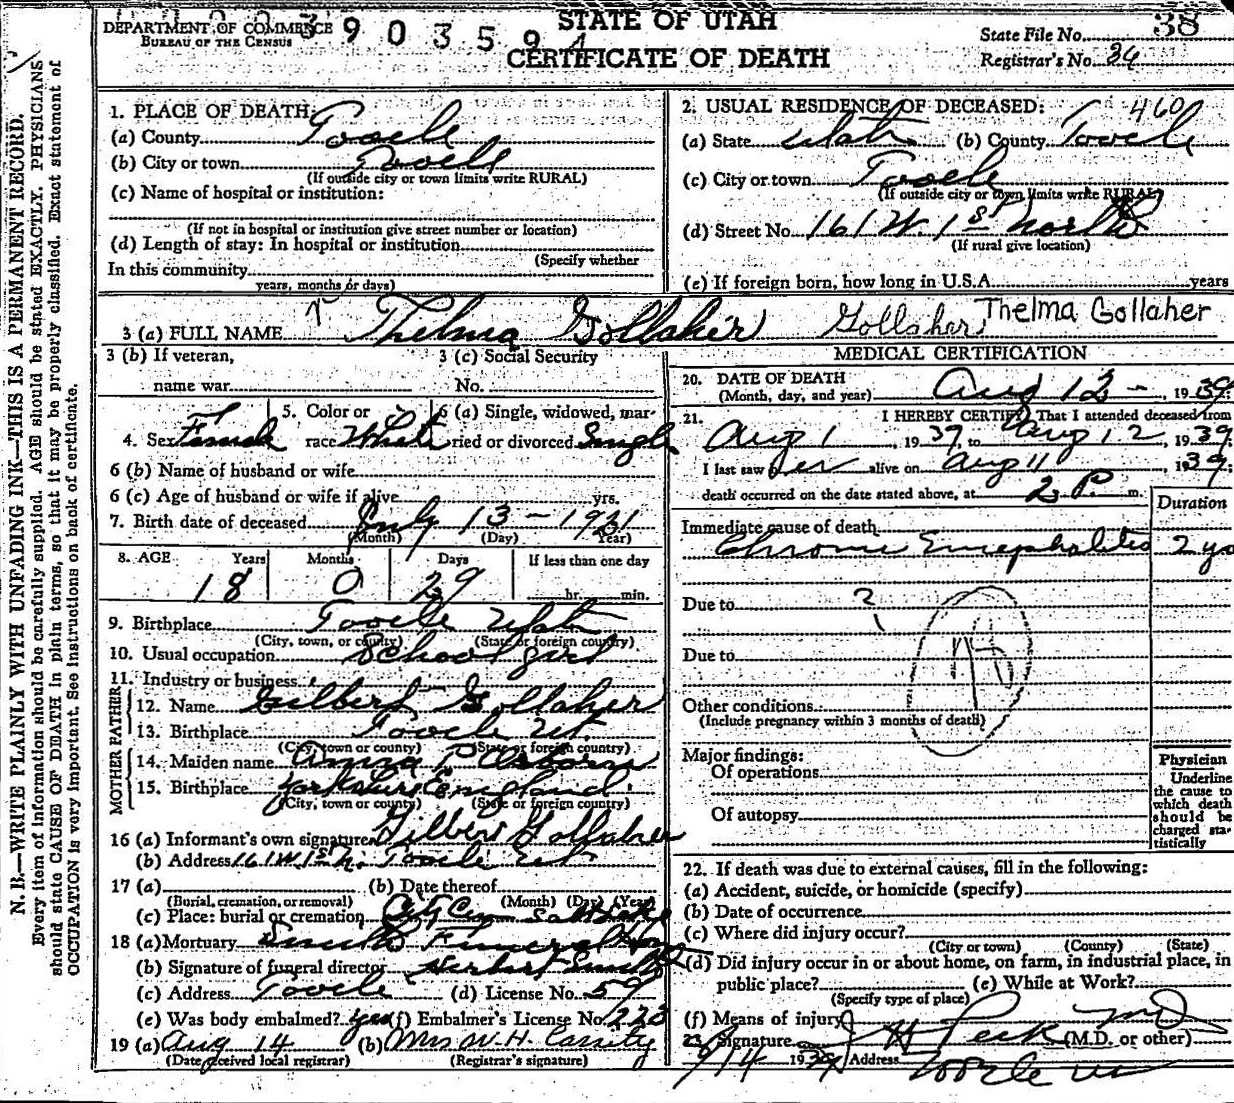 DEPARTMENT OF COMMERCE
BUREAU OF THE CENSUS
390359
STATE OF UTAH
CERTIFICATE OF DEATH
38
State File No.
Registrar's No. 34
N. B.—WRITE PLAINLY WITH UNFADING INK—THIS IS A PERMANENT RECORD.
Every item of information should be carefully supplied. AGE should be stated EXACTLY. PHYSICIANS
should state CAUSE OF DEATH in plain terms, so that it may be properly classified. Exact statement of
OCCUPATION is very important. See instructions on back of certificate.
1. PLACE OF DEATH:
(a) County Tooele
(b) City or town Tooele
(If outside city or town limits write RURAL)
(c) Name of hospital or institution:
(If not in hospital or institution give street number or location)
(d) Length of stay: In hospital or institution
(Specify whether
In this community
years, months or days)
2. USUAL RESIDENCE OF DECEASED: 460
(a) State Utah (b) County Tooele
(c) City or town Tooele
(If outside city or town limits write RURAL)
(d) Street No. 161 W. 1st North
(If rural give location)
(e) If foreign born, how long in U.S.A. years
3 (a) FULL NAME Thelma Gollaher Gollaher Thelma Gollaher
3 (b) If veteran,
name war
3 (c) Social Security
No.
4. Sex Female
5. Color or
race White
6 (a) Single, widowed, mar-
ried or divorced Single
6 (b) Name of husband or wife
6 (c) Age of husband or wife if alive yrs.
7. Birth date of deceased July 13 - 1921
(Month) (Day) (Year)
8. AGE Years Months Days If less than one day
18 0 29 hr. min.
9. Birthplace Tooele Utah
(City, town, or county) (State or foreign country)
10. Usual occupation School girl
11. Industry or business
FATHER
12. Name Gilbert Gollaher
13. Birthplace Tooele Ut.
(City, town or county) (State or foreign country)
MOTHER
14. Maiden name Anna P Osborne
15. Birthplace Yorkshire England
(City, town or county) (State or foreign country)
16 (a) Informant's own signature Gilbert Gollaher
(b) Address 161 W 1st N. Tooele Ut
17 (a) (b) Date thereof
(Burial, cremation, or removal) (Month) (Day) (Year)
(c) Place: burial or cremation City Cem Salt Lake
18 (a) Mortuary Smith Funeral Home
(b) Signature of funeral director Herbert Smith
(c) Address Tooele (d) License No. 59
(e) Was body embalmed? yes (f) Embalmer's License No. 223
19 (a) Aug 14 (b) Mrs W. H. Cassity
(Date received local registrar) (Registrar's signature)
MEDICAL CERTIFICATION
20. DATE OF DEATH
(Month, day, and year) Aug 12 - 1939
21. I HEREBY CERTIFY That I attended deceased from
Aug 1, 1937, to Aug 12, 1939
I last saw her alive on Aug 11, 1939
death occurred on the date stated above, at 2 P. m.
Duration
Immediate cause of death
Chronic Encephalitis 2 yr
Due to ?
Due to
Other conditions
(Include pregnancy within 3 months of death)
Major findings:
Of operations
Of autopsy
Physician
Underline
the cause to
which death
should be
charged sta-
tistically
22. If death was due to external causes, fill in the following:
(a) Accident, suicide, or homicide (specify)
(b) Date of occurrence
(c) Where did injury occur?
(City or town) (County) (State)
(d) Did injury occur in or about home, on farm, in industrial place, in
public place? (e) While at Work?
(Specify type of place)
(f) Means of injury
23. Signature J H Peck MD (M.D. or other)
8/14 1939 Address Tooele Ut